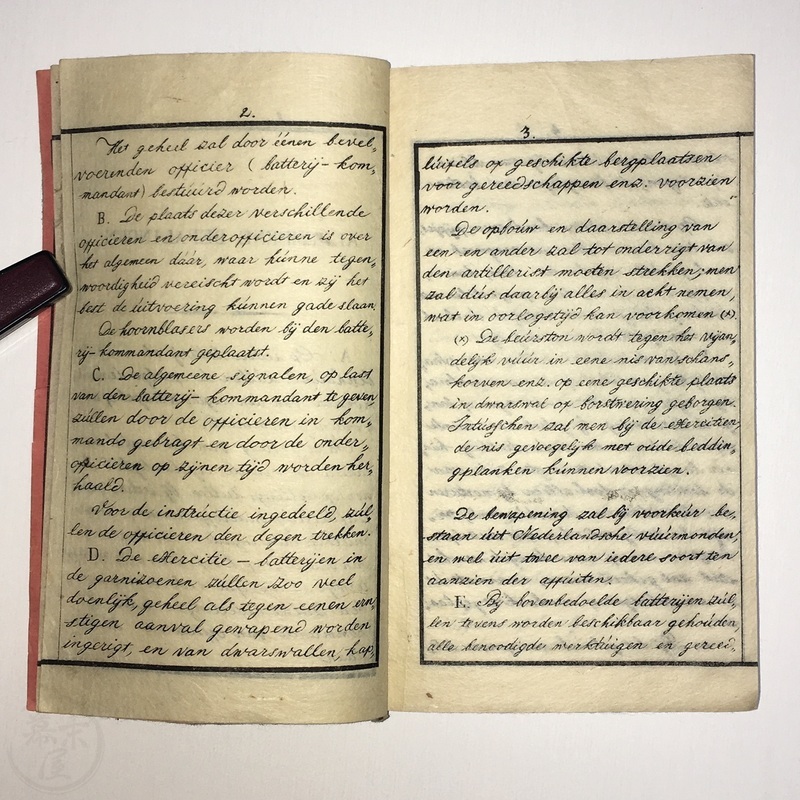 2.
Het geheel zal door éénen bevel„
voerenden officier (batterij-kom„
mandant) bestúúrd worden.
B. De plaats dezer verschillende
officieren en onderofficieren is over
het algemeen dáár, waar húnne tegen„
woordigheid vereischt wordt en zij het
best de úitvoering kúnnen gade slaan.
De hoornblasers worden bij den batte„
rij-kommandant geplaatst.
C. De algemeene signalen, op last
van den batterij-kommandant te geven,
zúllen door de officieren in kom„
mando gebragt en door de onder„
officieren op zijnen tijd worden her„
haald.
Voor de instrúctie ingedeeld, zúl„
len de officieren den degen trekken.
D. De exercitie-batterijen in
de garnizoenen zúllen zoo veel
doenlijk, geheel als tegen eenen ern„
stigen aanval gewapend worden
ingerigt, en van dwarswallen, kap„
3.
lúifels of geschikte bergplaatsen
voor gereedschappen enz. voorzien
worden.
De opboúw en daarstelling van
een en ander zal tot onderrigt van
den artillerist moeten strekken; men
zal dús daarbij alles in acht nemen,
wat in oorlogstijd kan voorkomen (*).
(*) De keúrston wordt tegen het vijan„
delijk vúúr in eene nis van schans„
korven enz. op eene geschikte plaats
in dwarswal of borstwering geborgen.
Intússchen zal men bij de exercitien
de nis gevoegelijk met oúde beddin„
gplanken kúnnen voorzien.
De bewapening zal bij voorkeúr be„
staan úit Nederlandsche vúúrmonden,
en wel úit twee van iedere soort ten
aanzien der affúiten.
E. Bij bovenbedoelde batterijen zúl„
len tevens worden beschikbaar gehoúden
alle benoodigde werktúigen en gereed„